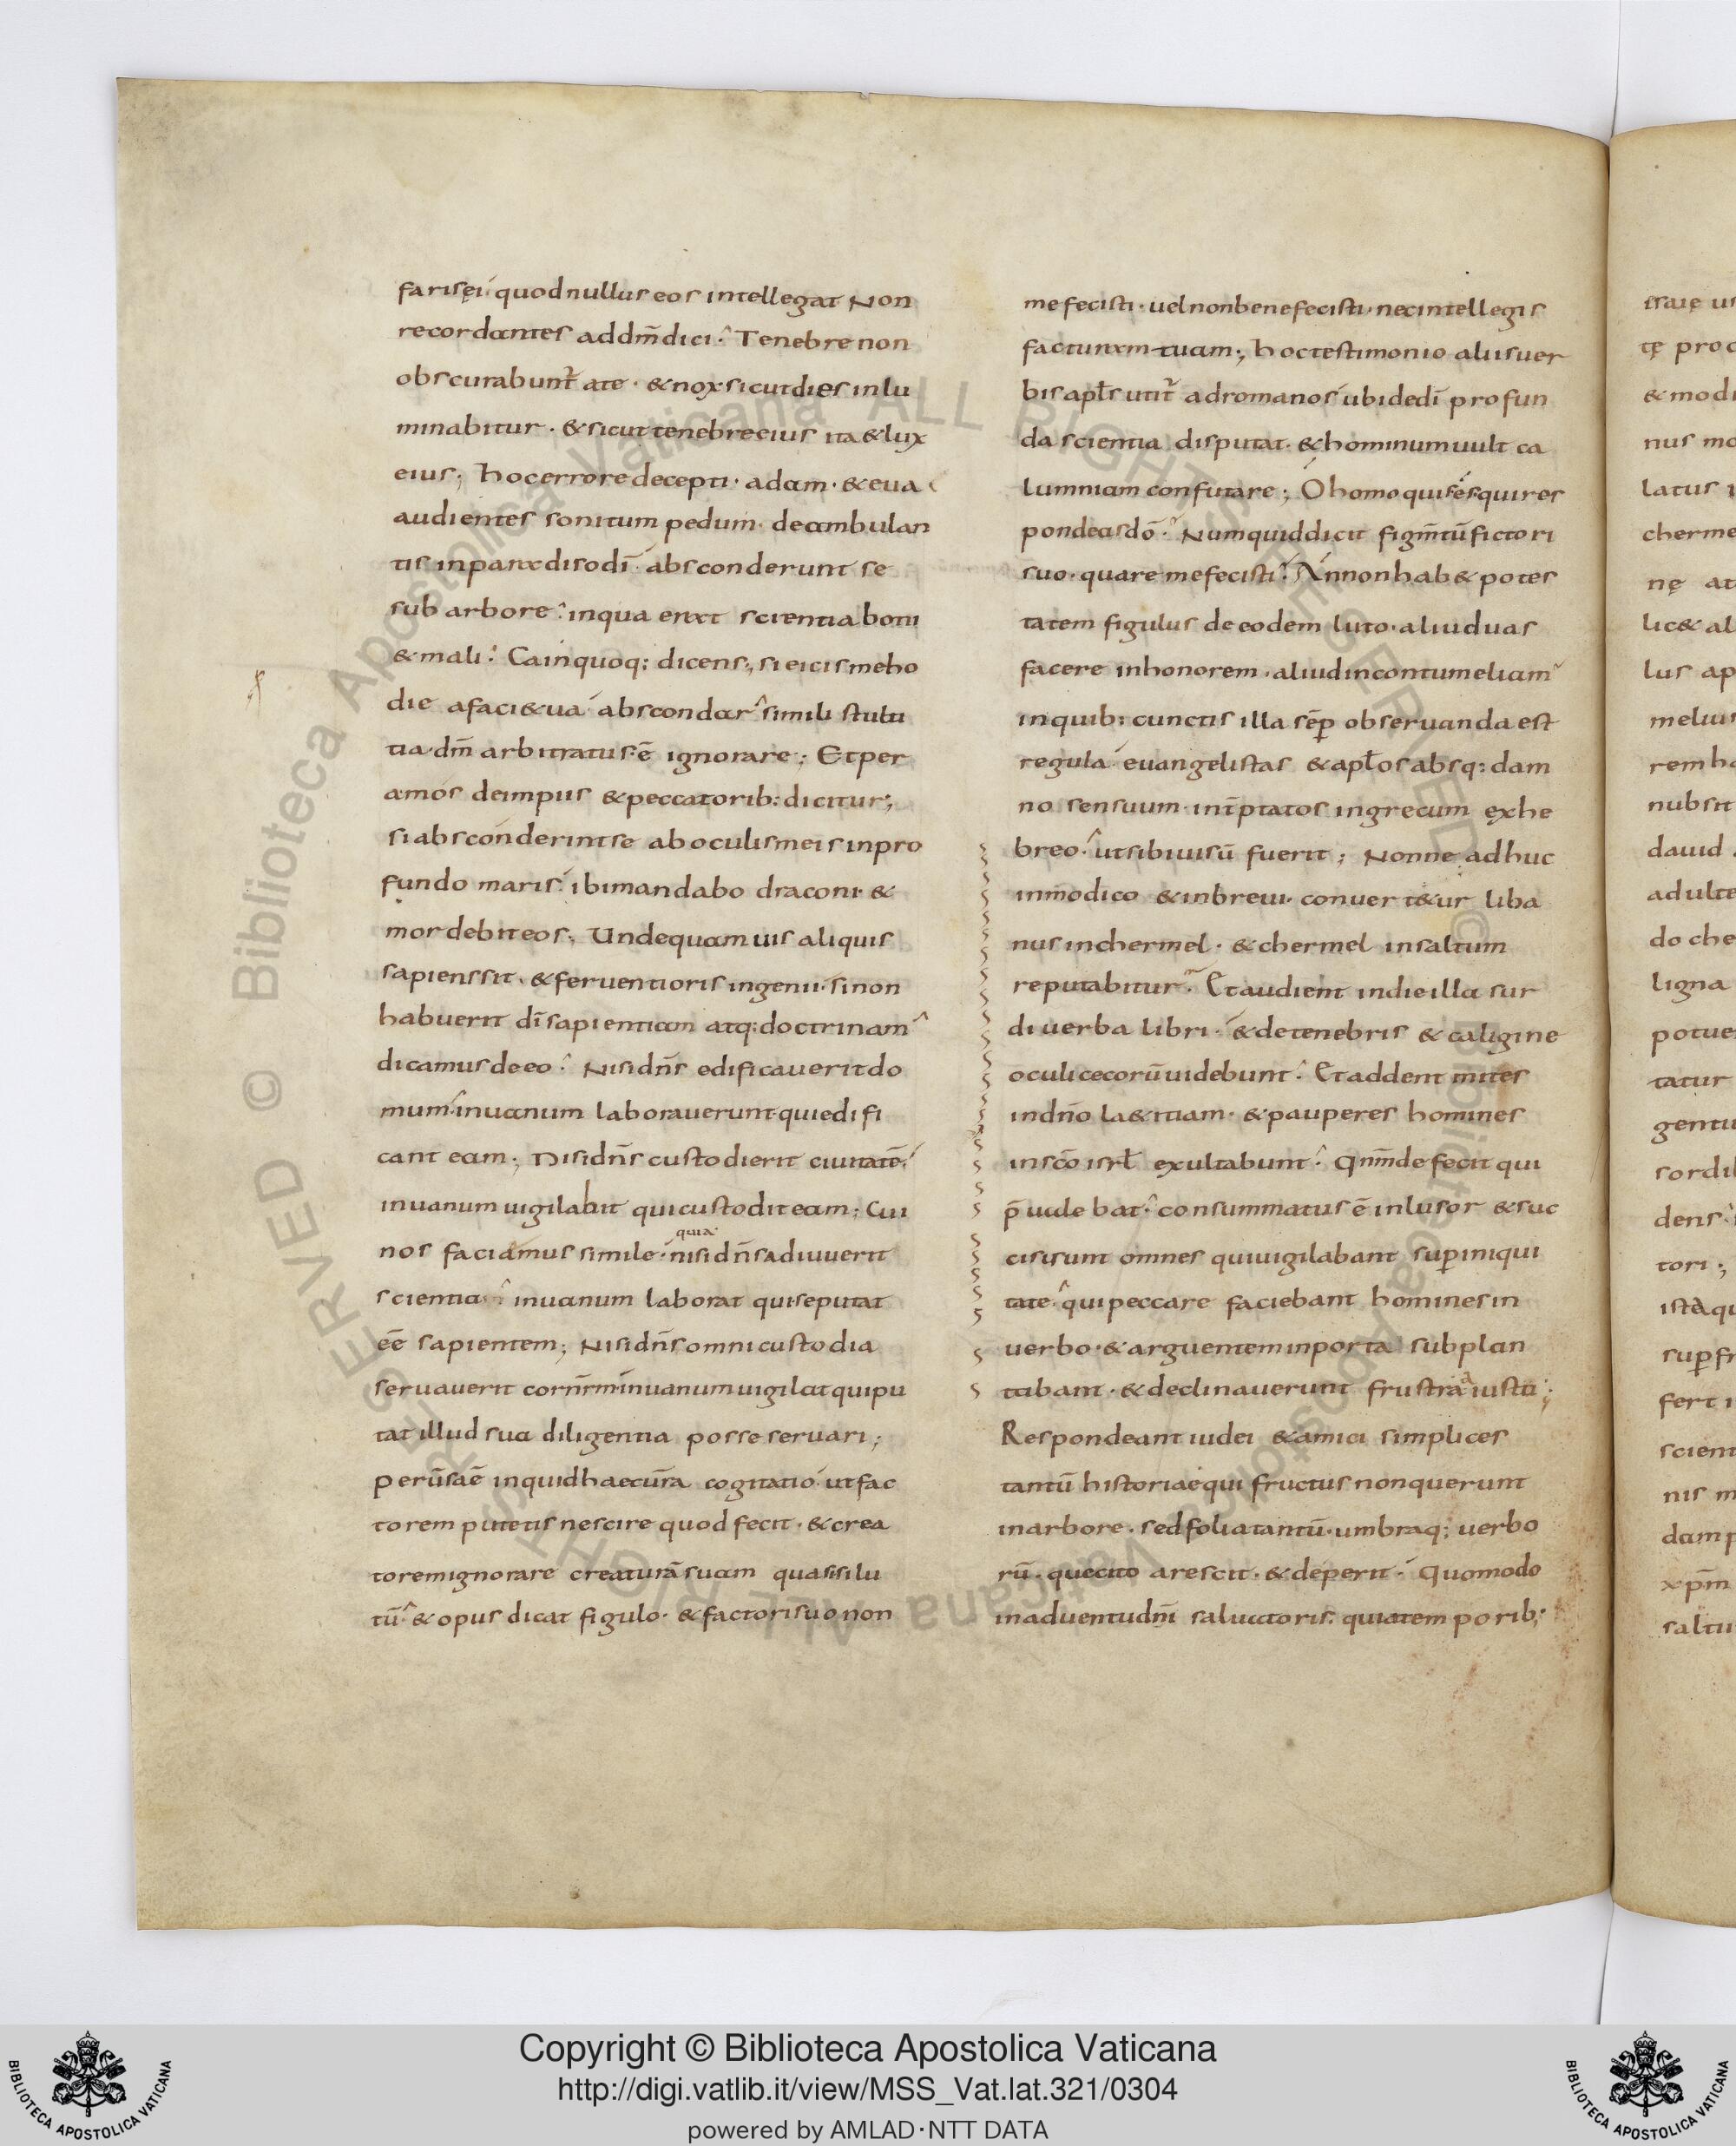 farisęi quod nullus eos intellegat Non
recordantes ad dm̄ dici. Tenebre non
obscurabunt̄ a te · & nox sicut dies inlu
minabitur · & sicut tenebre eius ita & lux
eius; hoc errore decepti · adam · & eua
audientes sonitum pedum · deambulan
tis in paradiso dī absconderunt se
sub arbore in qua erat scientia boni
& mali. Cain quoq; dicens; si eicis me ho
die a faci& ua abscondar simili stulti
tia dm̄ arbitratus ē ignorare; Et per
amos de impiis & peccatorib: dicitur;
si absconderint se ab oculis meis in pro
fundo maris ibi mandabo draconi · &
mordebit eos; Unde quamuis aliquis
sapiens sit · & feruentioris ingenii si non
habuerit dī sapientiam atq; doctrinam
dicamus de eo. Nisi dn̄s edificauerit do
mum in uanum laborauerunt qui edifi
cant eam; Nisi dn̄s custodierit ciuitatē
in uanum uigilabit qui custodit eam; Cui
quia
nos faciamus simile nisi dn̄s adiuuerit
scientia in uanum laborat qui se putat
eē sapientem; Nisi dn̄s omni custodia
seruauerit cor nr̄m in uanum uigilat qui pu
tat illud sua diligentia posse seruari;
peruēsa ē inquid haec ur̄a cogitatio ut fac
torem putetis nescire quod fecit · & crea
torem ignorare creaturā suam quasi si lu
tū & opus dicat figulo · & factori suo non
me fecisti · uel non bene fecisti · nec intellegis
facturam tuam; hoc testimonio aliis uer
bis apl̄s utit̄ ad romanos ubi de dī profun
da scientia disputat · & hominum uult ca
lumniam confutare; O homo quis és qui res
pondeas dō. Numquid dicit figm̄tū fictori
suo · quare me fecisti. An non hab& potes
tatem figulus de eodem luto · aliud uas
facere in honorem · aliud in contumeliam
in quib: cunctis illa sēp obseruanda est
regula euangelistas & apl̄os absq: dam
no sensuum int̄ptatos in grecum ex he
breo. ut sibi uisū fuerit; Nonne adhuc
in modico & in breui · conuert&ur liba
nus in chermel · & chermel in saltum
reputabitur. Et audient in die illa sur
di uerba libri · & de tenebris & caligine
oculi cecorū uidebunt. Et addent mites
in dn̄o la&itiam · & pauperes homines
in scō isrl̄ exultabunt. Qnm̄ defecit qui
p̄ualebat. consummatus ē inlusor & suc
cisi sunt omnes qui uigilabant sup iniqui
tate qui peccare faciebant homines in
uerbo · & arguentem in porta subplan
tabant · & declinauerunt frustra a iusto;
Respondeant iudei & amici simplices
tantū historiae qui fructus non querunt
in arbore · sed folia tantū · umbraq; uerbo
rū · que cito arescit · & deperit · Quomodo
in aduentu dn̄i saluatoris · quia temporib;
ęsaię
tę
&
nus
latus
cherme
nę at
lic& al
lus ap
melius
rem
nubsit
dauid
adulte
do che
ligna
potue
tatur
gentiu
sordi
dens
tori;
ista qu
sup fr
fert
scient
nis
dam
xp̄m
saltu
© Biblioteca Apostolica Vaticana ALL RIGHTS RESERVED © Biblioteca Apostolica Vaticana ALL RIGHTS RESERVED
Copyright © Biblioteca Apostolica Vaticana
http://digi.vatlib.it/view/MSS_Vat.lat.321/0304
powered by AMLAD·NTT DATA
BIBLIOTECA APOSTOLICA VATICANA
BIBLIOTECA APOSTOLICA VATICANA